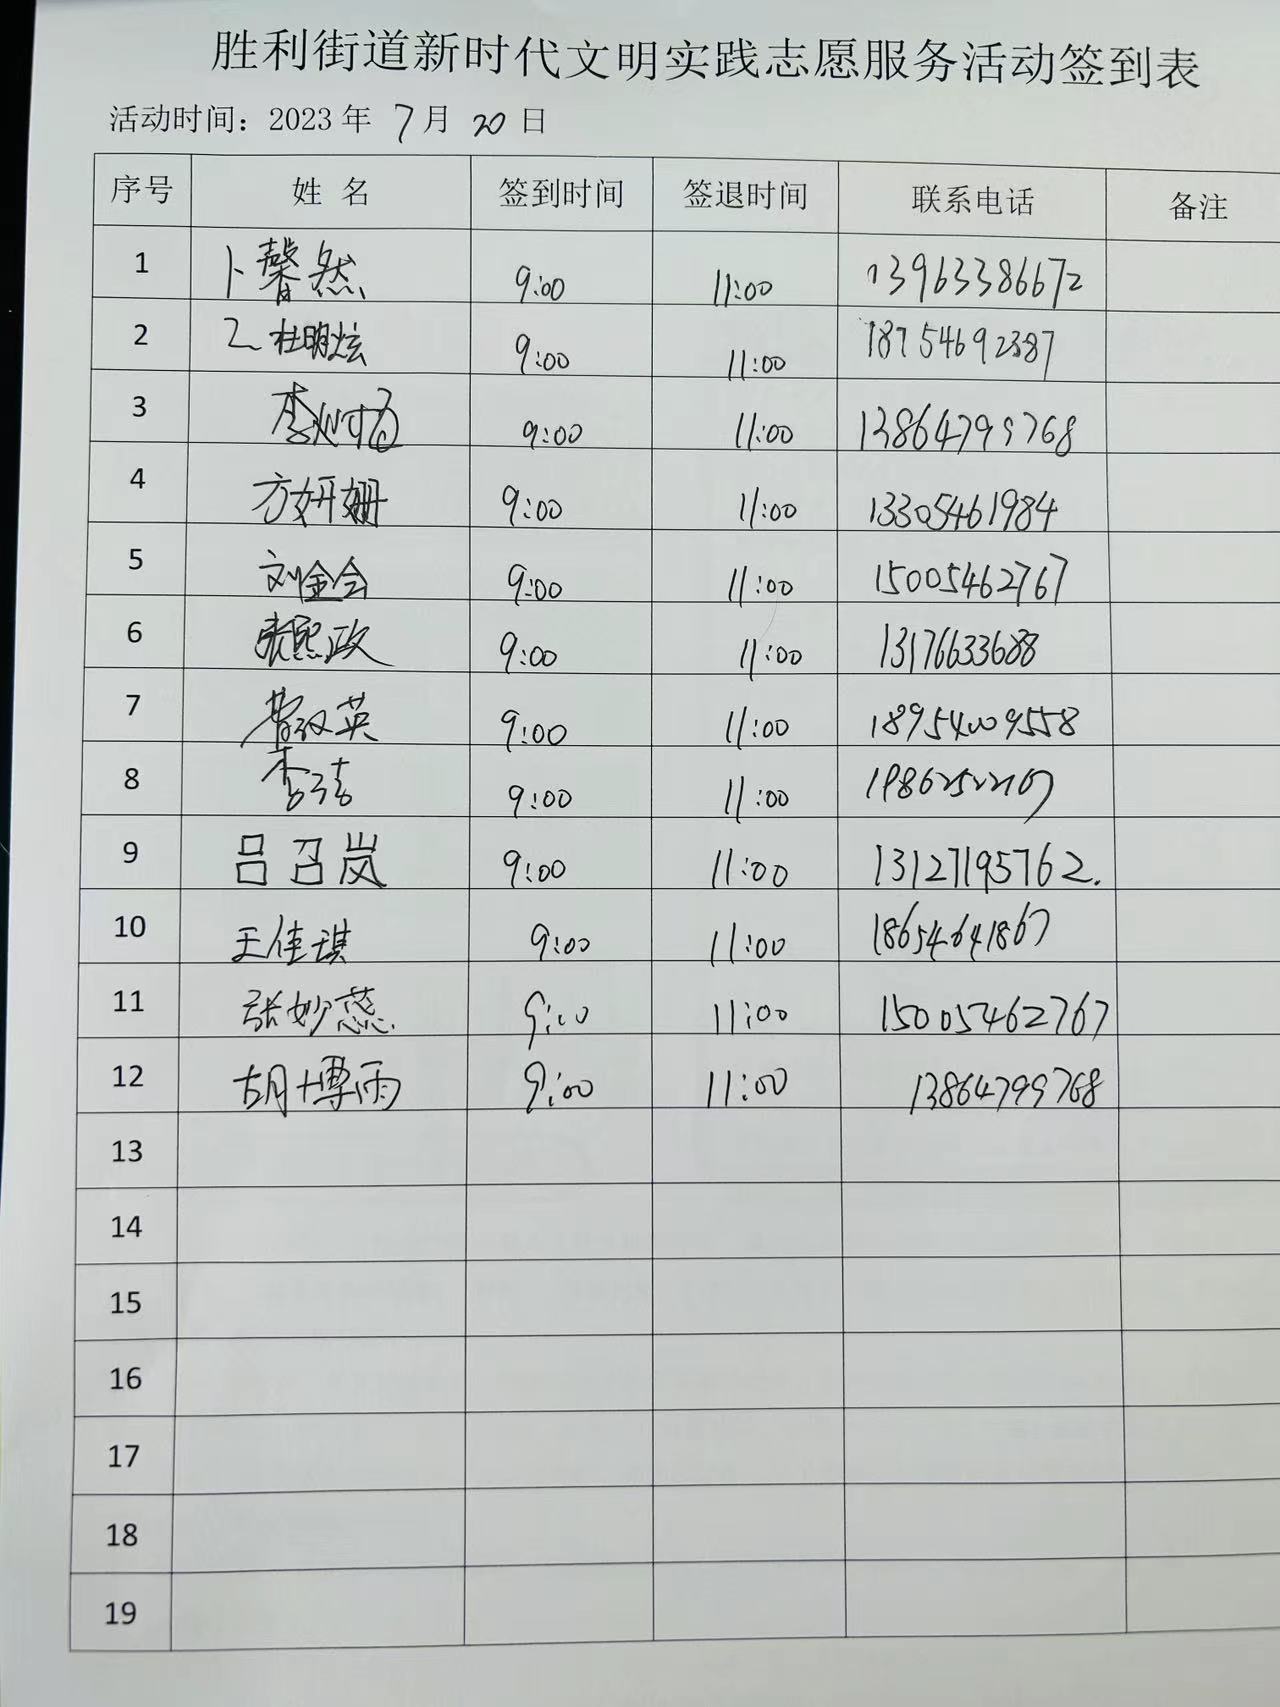 胜利街道新时代文明实践志愿服务活动签到表
活动时间：2023 年 7 月 20 日
序号 姓 名 签到时间 签退时间 联系电话 备注
1 卜馨然 9:00 11:00 13963386672
2 乙杜明炫 9:00 11:00 18754692387
3 李 9:00 11:00 13864799768
4 方妍姗 9:00 11:00 13305461984
5 刘金会 9:00 11:00 15005462767
6 张熙政 9:00 11:00 13176633688
7 费汉英 9:00 11:00 18954009558
8 李 9:00 11:00
9 吕召岚 9:00 11:00 13127195762.
10 王佳琪 9:00 11:00 18654641867
11 张妙蕊 9:00 11:00 15005462767
12 胡博雨 9:00 11:00 13864799768
13
14
15
16
17
18
19